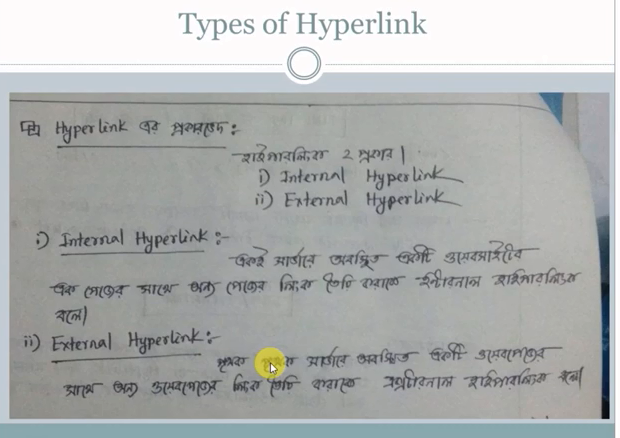 Types of Hyperlink
Hyperlink এর প্রকারভেদ :
হাইপারলিংক ২ প্রকার।
i) Internal Hyperlink
ii) External Hyperlink
i) Internal Hyperlink :-
একই সার্ভারে অবস্থিত একটি ওয়েবসাইটের
এক পেজের সাথে অন্য পেজের লিংক তৈরি করাকে ইন্টারনাল হাইপারলিংক
বলে।
ii) External Hyperlink :-
পৃথক পৃথক সার্ভারে অবস্থিত একটি ওয়েবপেজের
সাথে অন্য ওয়েবপেজের লিংক তৈরি করাকে এক্সটারনাল হাইপারলিংক বলে।